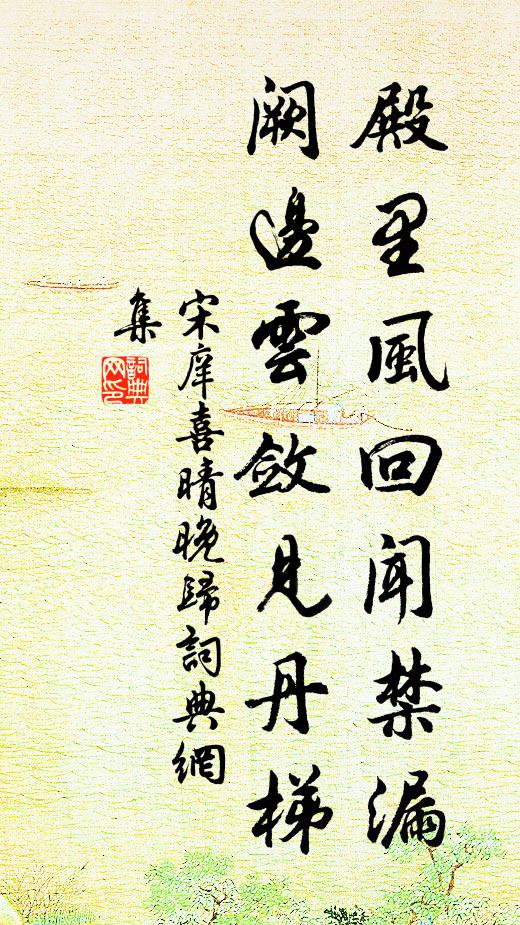 殿里風回聞禁漏
闕邊雲斂見丹梯
宋庠喜晴晚歸詞典網
集
詞典网印